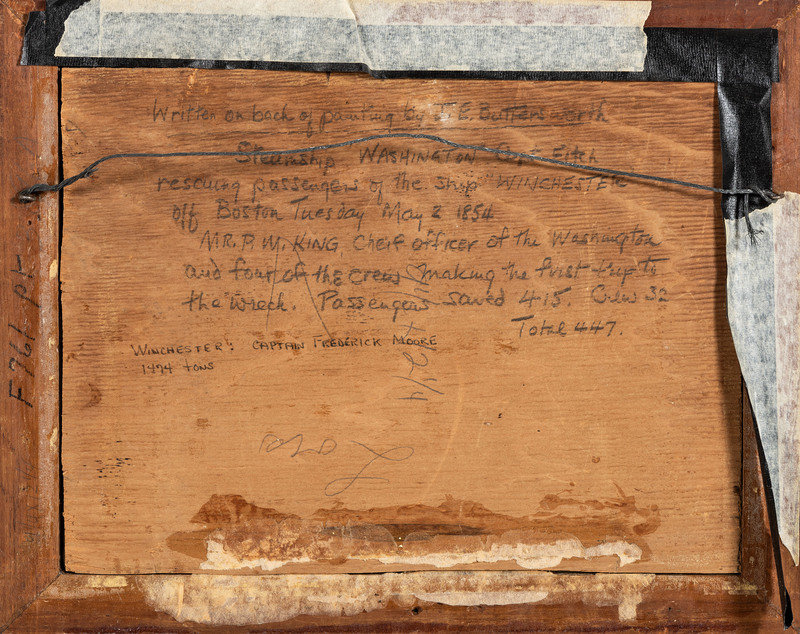 Written on back of painting by J. E. Buttersworth
Steamship WASHINGTON Capt Fitch
rescuing passengers of the ship "WINCHESTER
off Boston Tuesday May 2 1854
MR. P. M. KING, Cheif officer of the Washington
and four of the crew making the first trip to
the wreck. Passengers saved 415. Crew 32
Total 447.
"WINCHESTER": CAPTAIN FREDERICK MOORE
1474 TONS
2 1/4